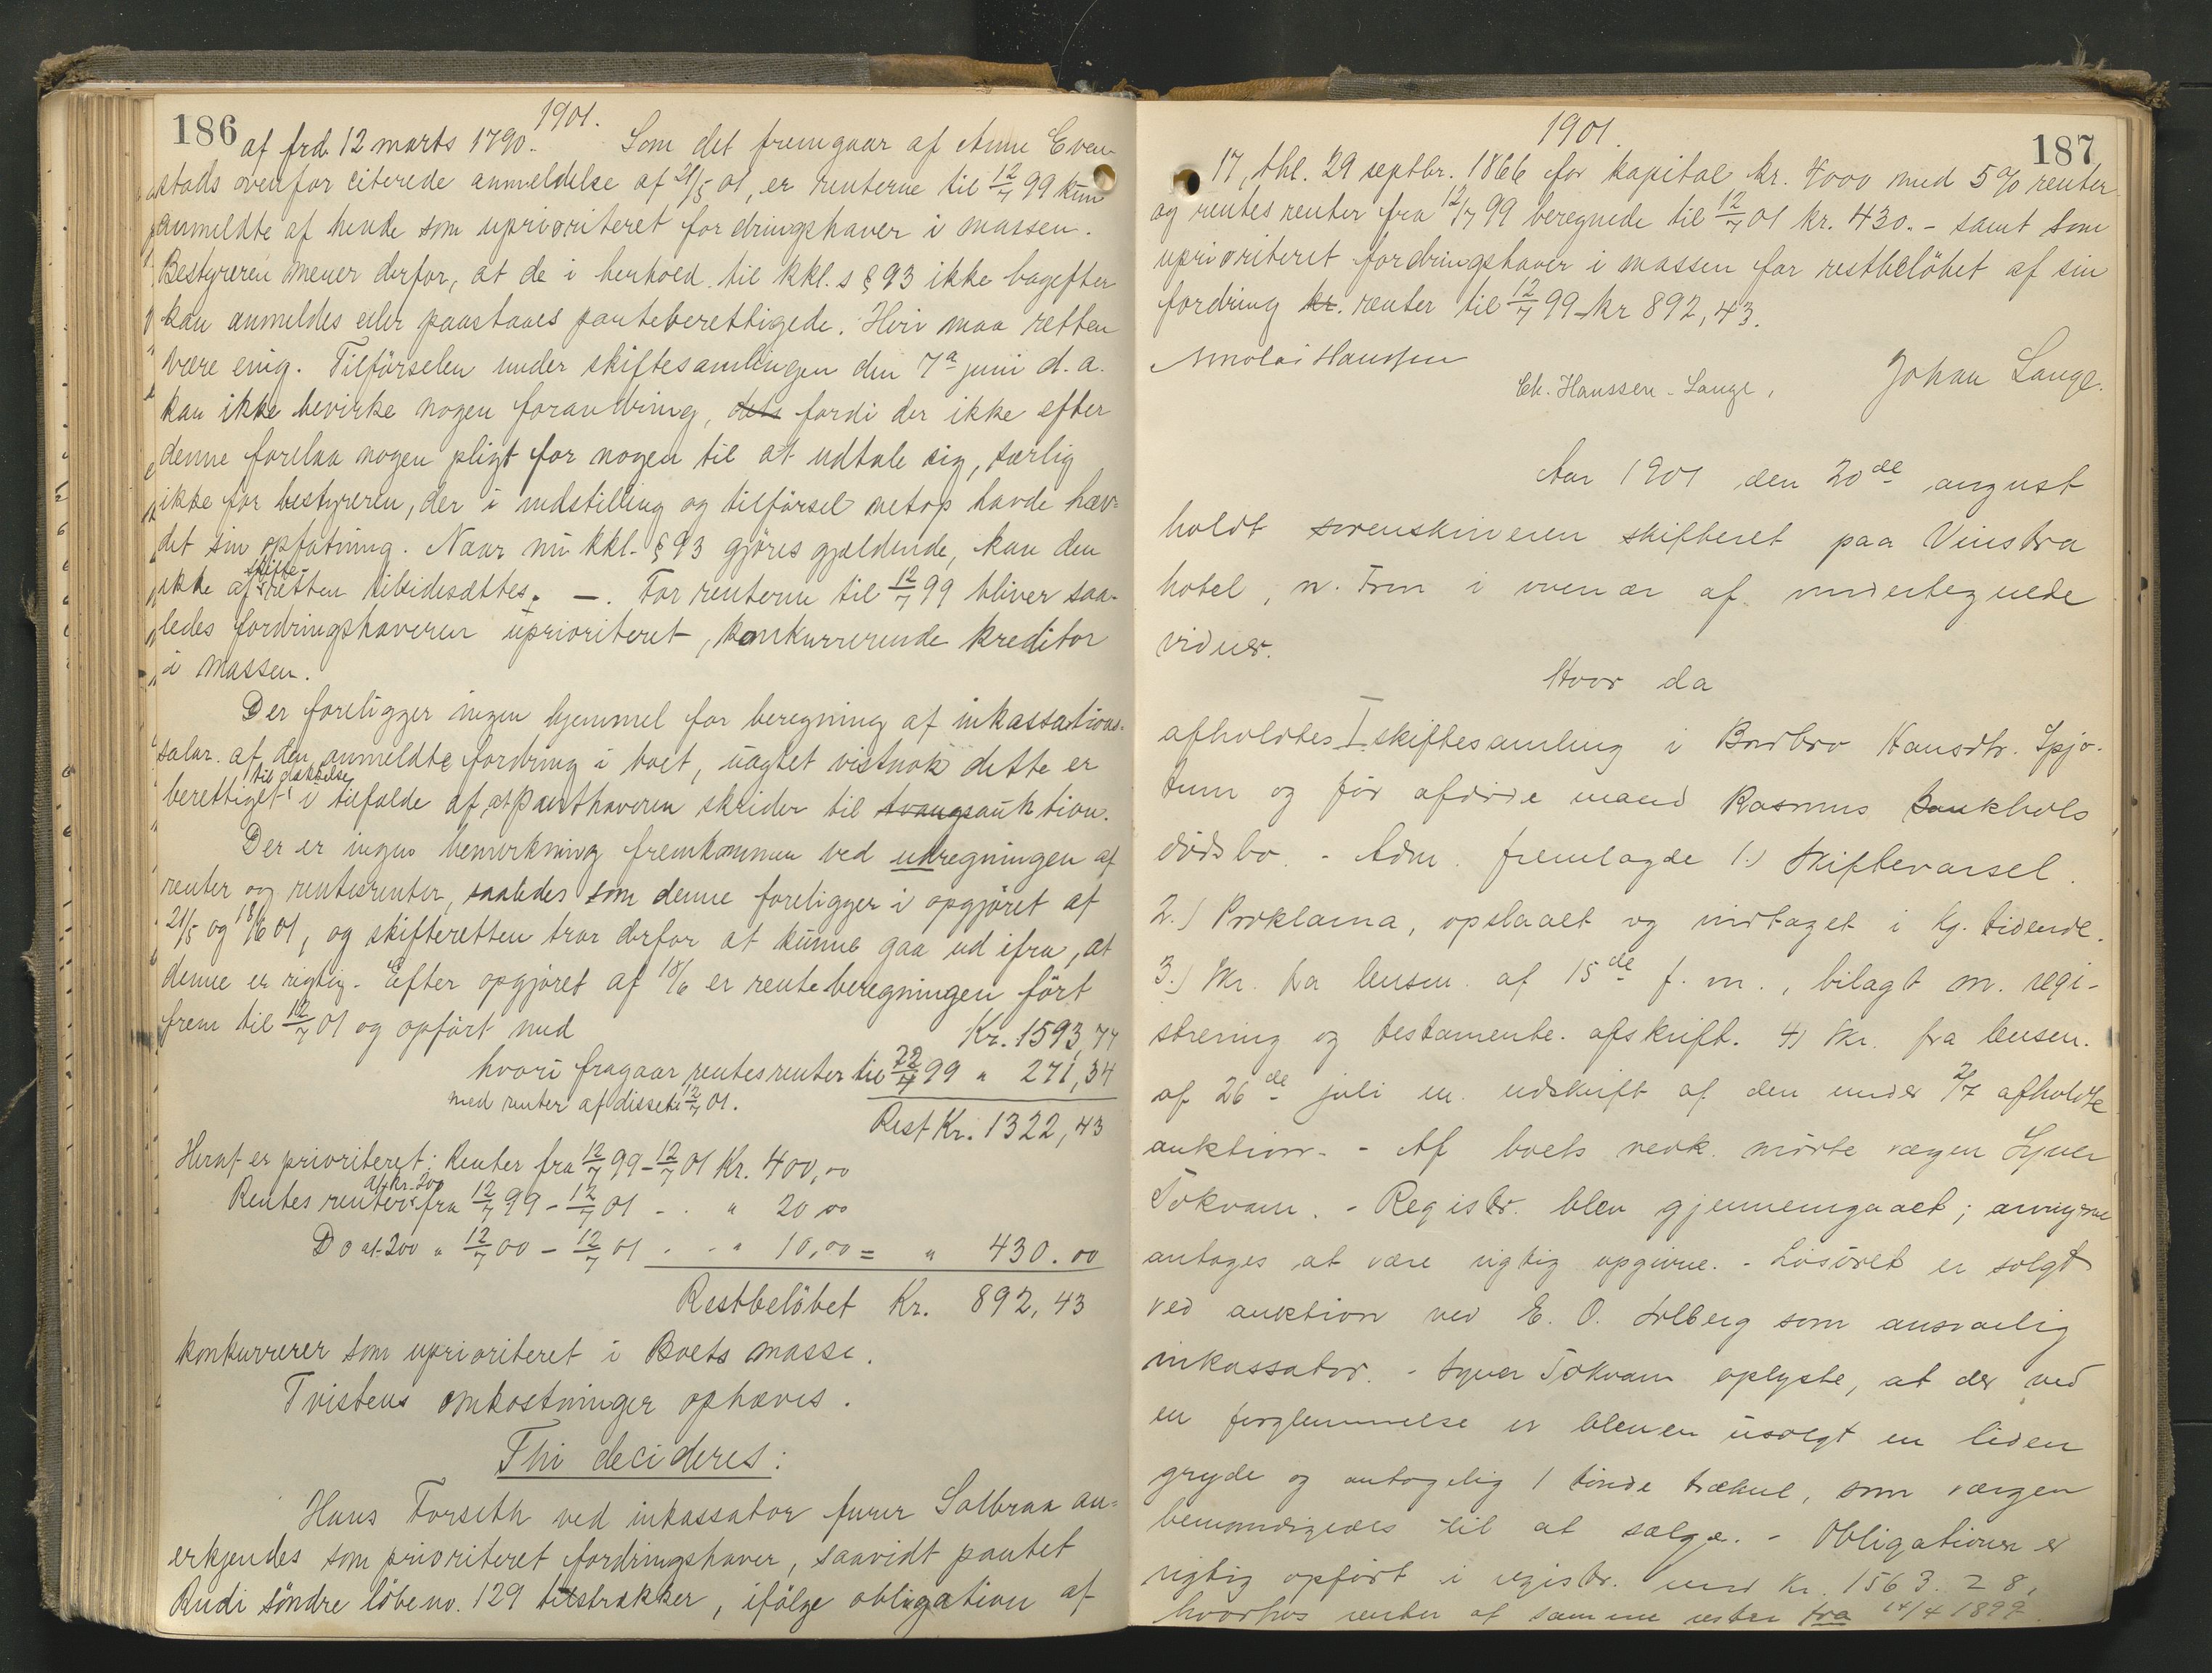 186
1901.
af frd. 12 marts 1790. Som det fremgaar af Anne Even-
stads ovenfor citerede anmeldelse af 21/5 01, er renterne til 12/7 99 kun
anmeldte af hende som uprioriteret fordringshaver i massen.
Bestyreren mener derfor, at de i henhold til kkl.s § 93 ikke bagefter
kan anmeldes eller paastaaes panteberettigede. Heri maa retten
være enig. Tilførselen under skiftesamlingen den 7de juni d. a.
kan ikke bevirke nogen forandring, fordi der ikke efter
denne forelaa nogen pligt for nogen til at udtale sig, særlig
ikke for bestyreren, der i indstilling og tilførsel netop havde hæv-
det sin opfatning. Naar nu kkl. § 93 gjøres gjældende, kan den
ikke af skifte-
retten tilsidesættes. —. For renterne til 12/7 99 bliver saa-
ledes fordringshaveren uprioriteret, konkurrerende kreditor
i massen.
Der foreligger ingen hjemmel for beregning af inkassations-
salær af den anmeldte fordring i boet, uagtet vistnok dette er
berettiget til dækkelse i tilfælde af, at panthaveren skrider til tvangsauktion.
Der er ingen bemerkning fremkommen ved udregningen af
renter og rentesrenter, saaledes som denne foreligger i opgjøret af
21/5 og 18/6 01, og skifteretten tror derfor at kunne gaa ud ifra, at
denne er rigtig. Efter opgjøret af 18/6 er renteberegningen ført
frem til 12/7 01 og opført med Kr. 1593,77
hvori fragaar rentesrenter til 22/4 99 " 271,34
med renter af disse til 12/7 01.
Rest Kr. 1322,43
Heraf er prioriteret: Renter fra 12/7 99 - 12/7 01 Kr. 400,00
Rentes renter af kr. 200 fra 12/7 99 - 12/7 01 - . " 20,00
Do af 200 " 12/7 00 - 12/7 01 . . " 10,00 = " 430.00
Restbeløbet Kr. 892,43
konkurrerer som uprioriteret i Boets masse.
Tvistens omkostninger ophæves.
Thi decideres:
Hans Forseth ved inkassator furer Solbraa an-
erkjendes som prioriteret fordringshaver, saavidt pantet
Rudi søndre løbeno. 129 tilstrækker, ifølge obligation af
187
1901.
17, thl. 29 septbr. 1866 for kapital kr. 4000 med 5% renter
og rentes renter fra 12/7 99 beregnede til 12/7 01 kr. 430.- samt som
uprioriteret fordringshaver i massen for restbeløbet af sin
fordring kr. renter til 12/7 99 kr 892,43.
Nikolai Hanssen
Ch. Hanssen-Lange,
Johan Lange.
Aar 1901 den 20de august
holdt sorenskriveren skifteret paa Vinstra
hotel, n. Fron i overvær af undertegnede
vidner.
Hvor da
afholdtes I skiftesamling i Brdbro Hansdtr.
tum og før afdøde mand Rasmus
dødsbo. - Adm. fremlagde 1.) Skiftevarsel.
2.) Proklama, opslaaet og indtaget i kg. tidende.
3.) Skr. fra lensm. af 15de f. m., bilagt m. regi-
strering og testamente. afskrift. 4) Skr. fra lensm.
af 26de juli m. udskrift af den under 2/7 afholdte
auktion. - Af boets vedk. mødte værgen Syver
Tokvam. - Registr. blev gjennemgaaet; arvingerne
antages at være rigtig opgivne. - Løsøret er solgt
ved auktion ved E. O. Solberg som ansvarlig
inkassator. - Syver Tokvam oplyste, at der ved
en forglemmelse er bleven usolgt en liden
gryde og antagelig 1 tønde trækul, som værgen
bemyndigedes til at sælge. - Obligationen er
rigtig opført i registr. med Kr. 1563.28,
hvorhos renter af samme rester fra 14/4 1899.